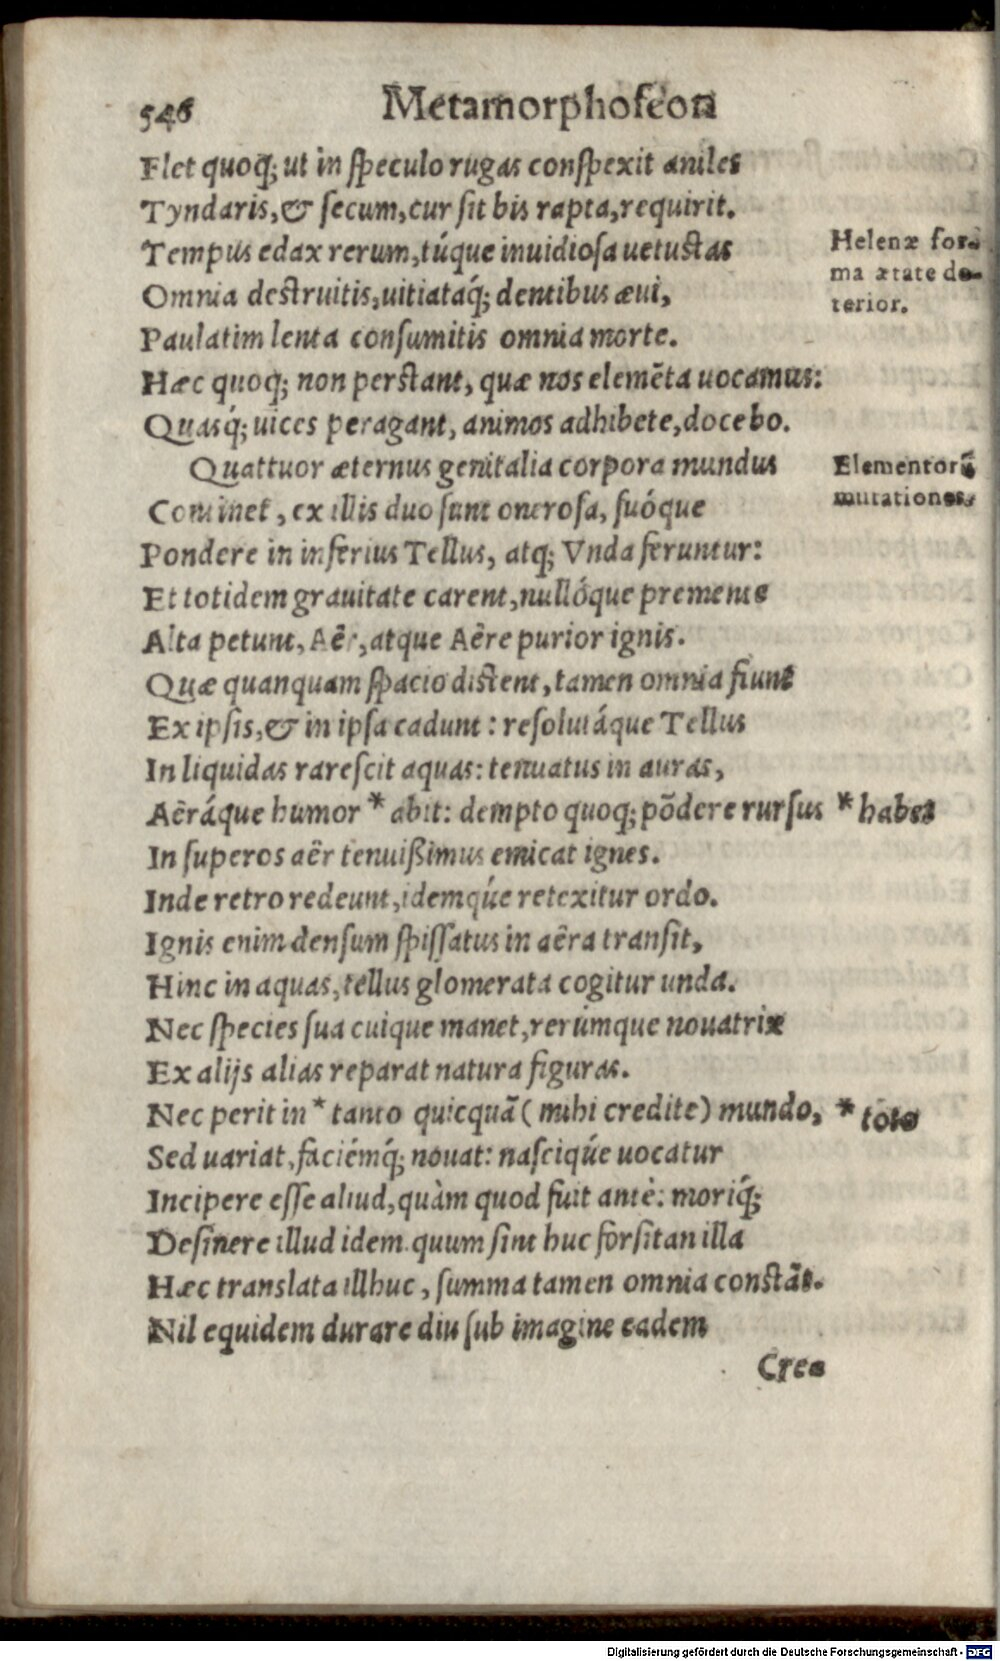 546 Metamorphoſeon
Flet quoq; ut in ſpeculo rugas conſpexit aniles
Tyndaris, & ſecum, cur ſit bis rapta, requirit.
Tempus edax rerum, túque inuidioſa uetuſtas
Omnia deſtruitis, uitiataq́; dentibus æui,
Paulatim lenta conſumitis omnia morte.
Hæc quoq; non perſtant, quæ nos elemẽta uocamus:
Quasq́; uices peragant, animos adhibete, docebo.
Quattuor æternus genitalia corpora mundus
Continet, ex illis duo ſunt oneroſa, ſuóque
Pondere in inferius Tellus, atq; Vnda feruntur:
Et totidem grauitate carent, nullóque premente
Alta petunt, Aër, atque Aëre purior ignis.
Quæ quanquam ſpacio diſtent, tamen omnia fiunt
Ex ipſis, & in ipſa cadunt: reſolutáque Tellus
In liquidas rareſcit aquas: tenuatus in auras,
Aëráque humor * abit: dempto quoq; põdere rurſus
In ſuperos aër tenuißimus emicat ignes.
Inde retro redeunt, idemq́ue retexitur ordo.
Ignis enim denſum ſpiſſatus in aëra tranſit,
Hinc in aquas, tellus glomerata cogitur unda.
Nec ſpecies ſua cuique manet, rerúmque nouatrix
Ex alijs alias reparat natura figuras.
Nec perit in * tanto quicquã (mihi credite) mundo,
Sed uariat, faciémq́; nouat: naſciq́ue uocatur
Incipere eſſe aliud, quàm quod fuit antè: moriq́;
Deſinere illud idem. quum ſint huc forſitan illa
Hæc translata illhuc, ſumma tamen omnia conſtãt.
Nil equidem durare diu ſub imagine eadem
Cre=
Helenæ for=
ma ætate de=
terior.
Elementorũ
mutationes.
* habet
* toto
Digitalisierung gefördert durch die Deutsche Forschungsgemeinschaft - DFG